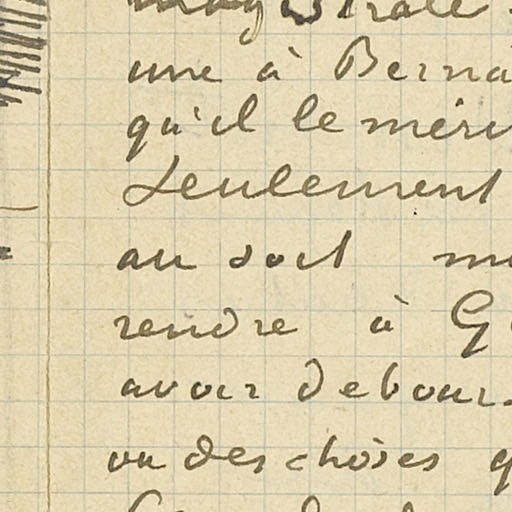 magistrale
une à Berna
qu'il le méri
Seulement
au soit m
rendre à G
avoir debour
ou des choses q